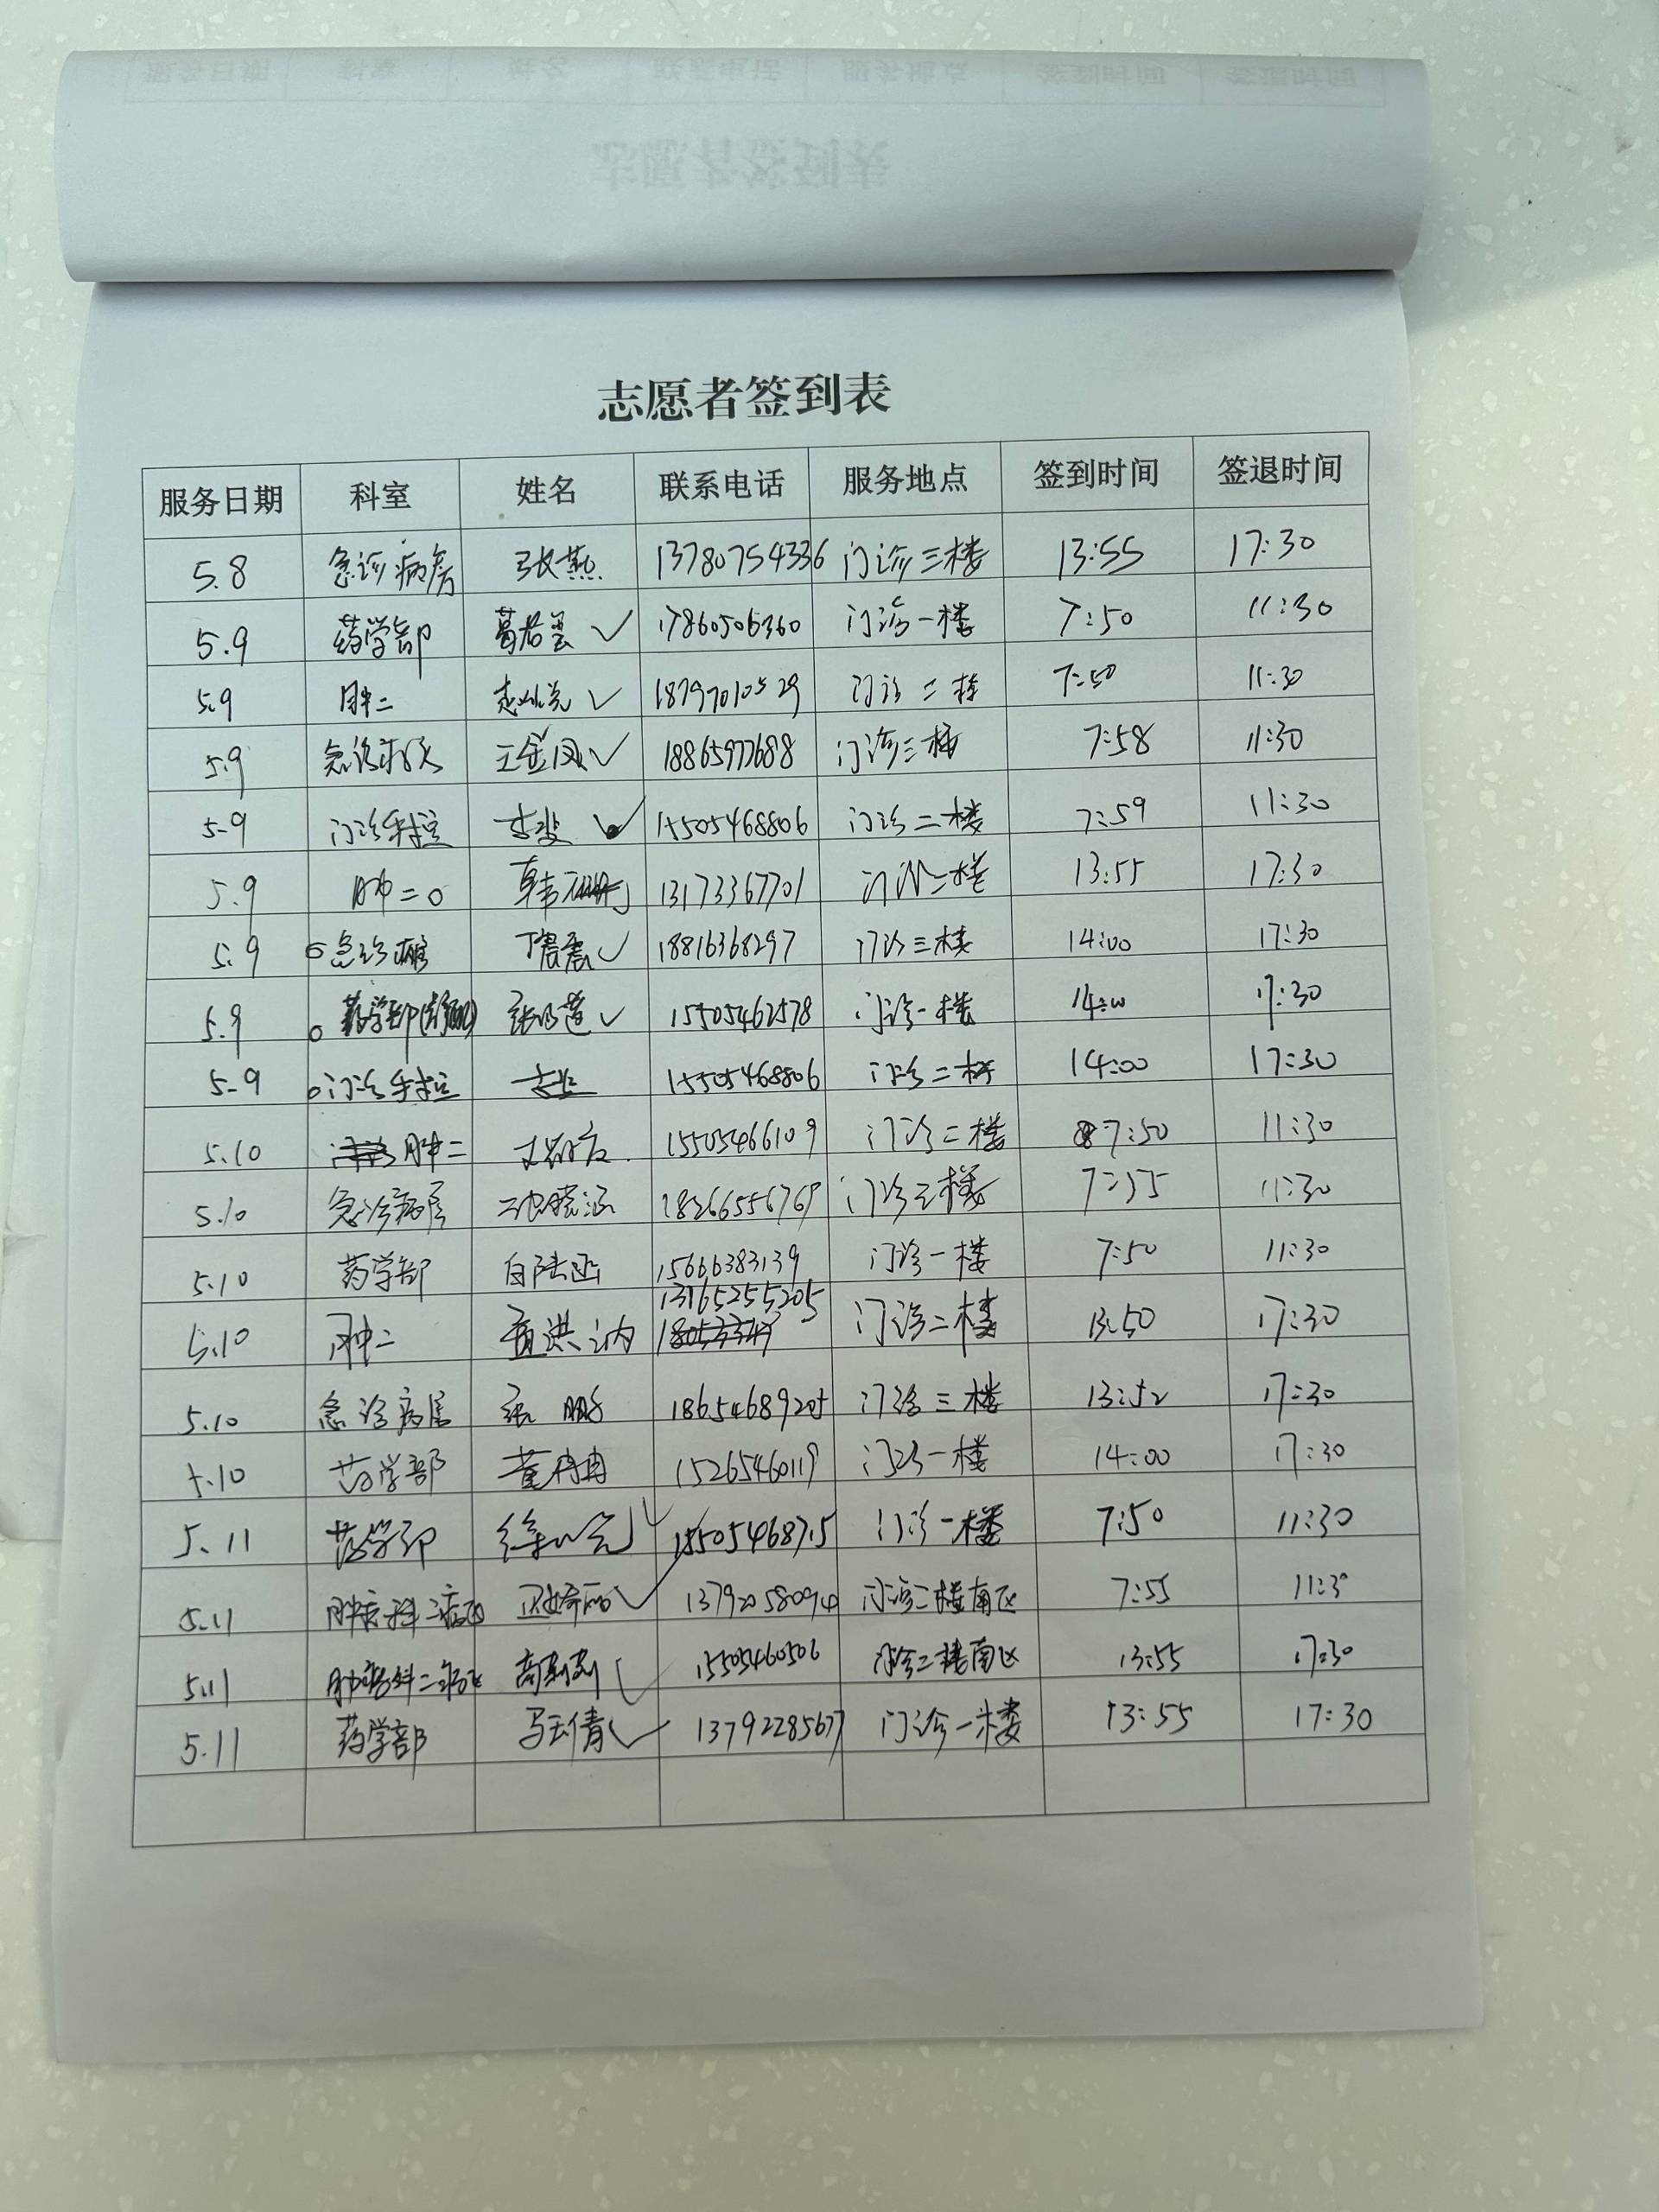 志愿者签到表
服务日期 科室 姓名 联系电话 服务地点 签到时间 签退时间
5.8 急诊病房 张燕 13780754336 门诊三楼 13:55 17:30
5.9 药学部 葛君 17860506360 门诊一楼 7:50 11:30
5.9 肿二 18797010529 门诊二楼 7:50 11:30
5.9 急诊病房 王金凤 18865977688 门诊三楼 7:58 11:30
5.9 门诊手拉 李斐 15505468806 门诊二楼 7:59 11:30
5.9 肿二 韩 13173367701 门诊二楼 13:55 17:30
5.9 急诊病房 18816368297 门诊三楼 14:00 17:30
5.9 药学部 张 15505462578 门诊一楼 14:00 17:30
5.9 门诊手拉 15505468806 门诊二楼 14:00 17:30
5.10 肿二 15505466109 门诊二楼 7:50 11:30
5.10 急诊病房 18266556769 门诊三楼 7:55 11:30
5.10 药学部 15666383139 门诊一楼 7:50 11:30
5.10 肿二 洪 13165255205 门诊二楼 13:50 17:30
5.10 急诊病房 张 鹏 18654689205 门诊三楼 13:52 17:30
5.10 药学部 董冉冉 15265460119 门诊一楼 14:00 17:30
5.11 药学部 15505468715 门诊一楼 7:50 11:30
5.11 肿瘤科二病区 13792058094 门诊二楼南区 7:55 11:30
5.11 肿瘤科二病区 高 15505460506 门诊二楼南区 13:55 17:30
5.11 药学部 马玉倩 13792285677 门诊一楼 13:55 17:30